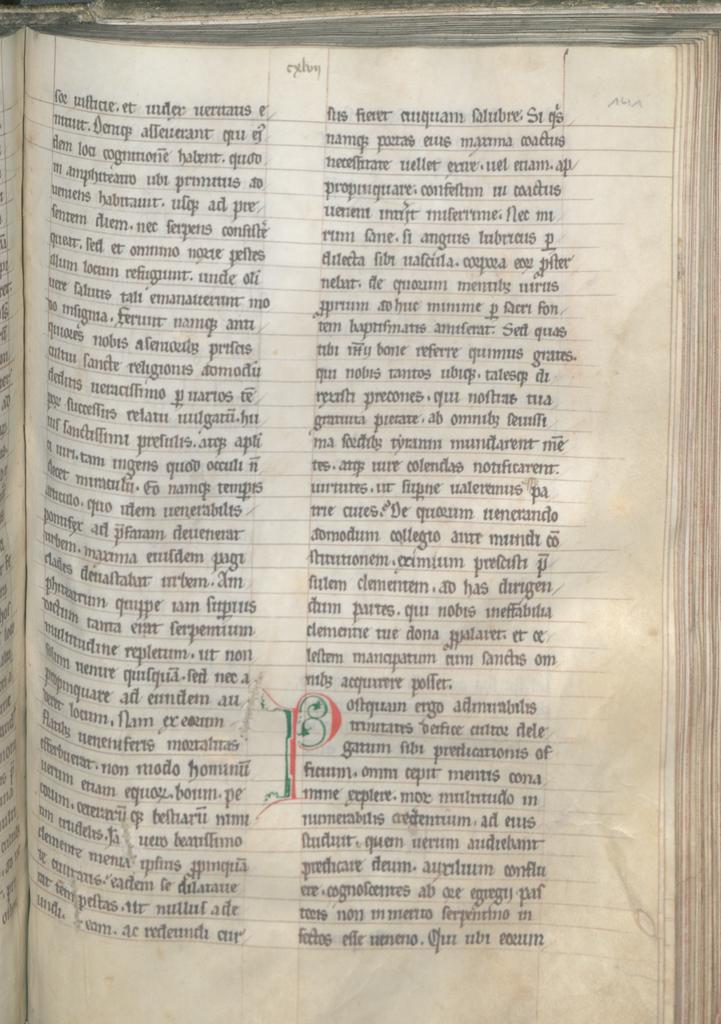 cxlvij
141
sor iusticie. et iudex ueritatis e
nituit. Deniq; asseuerant qui ei9
dem loci cognitionē habent. quod
in amphiteatro ubi primitus ad
ueniens habitauit. usq; ad pre
sentem diem. nec serpens consistē
queat. sed et omnino noxie pestes
illum locum refugiunt. unde oli
uere salutis tali emanauerunt mo
do insignia. Ferunt namq; anti
quiores nobis a senioribꝫ priscis
cultui sancte religionis admodū
deditis ueracissimo ꝑ uarios tē
poꝝ successus relatu uulgatū. hu
ius sanctissimi presulis. atq; apli
ci uiri. tam ingens quod occuli n̄
decet miraculū. Eo namq; temporis
articulo. quo idem uenerabilis
pontifex ad p̄fatam deuenerat
urbem. maxima eiusdem pagi
clades deuastabat urbem. Am
phiteatrum quippe iam superius
dictum tanta erat serpentium
multitudine repletum. ut non
solum uenire quisquā. sed nec a
propinquare ad eundem au
deret locum. Nam ex eorum
flatibꝫ ueneniferis mortalitas
efferbuerat. non modo hominū
uerum etiam equoꝝ. boum. pe
corum. ceterarū q; bestiarū nimi
um crudelis. uero beatissimo
clemente menia ipsius ꝓpinquā
te ciuitatis. eadem se dilataue
rat pestas. ut nullus ade
undi. eam. ac redeundi cur
sus fieret cuiquam salubre. Si q̇s
namq; portas eius maxima coactus
necessitate uellet exire. uel etiam. ap
propinquare. confestim ui coactus
ueneni miserrime. Nec mi
rum sane. si anguis lubricus ꝑ
dilecta sibi uascula. corpora eoꝝ ꝓster
nebat. de quorum mentibꝫ uirus
ꝓprium adhuc minime ꝑ sacri fon
tem baptismatis amiserat. Sed quas
tibi bone referre quimus grates.
qui nobis tantos ubiq; talesq; di
rexisti precones. qui nostras tua
gratuita pietate. ab omnibꝫ seuissi
ma sordibꝫ tyranni mundarent mē
tes. atq; iure colendas notificarent.
uirtutes. ut superne ualeremus pa
trie ciues. De quorum uenerando
admodum collegio ante mundi cō
stitutionem. eximium prescisti p̄
sulem clementem. ad has dirigen
dum partes. qui nobis ineffabilia
clementie tue dona ꝓpalaret. et ce
lestem mancipatum cum sanctis om
nibꝫ acquirere posset.
Postquam ergo admirabilis
trinitatis deifice cultor dele
gatum sibi predicationis of
ficium. omni cepit mentis cona
mine explere. mox multitudo in
numerabilis credentium. ad eius
studuit. quem uerum audiebant
predicare deum. auxilium conflu
ere. cognoscentes ab ore egregij pas
toris non inmerito serpentino in
fectos esse ueneno. Qui ubi eorum